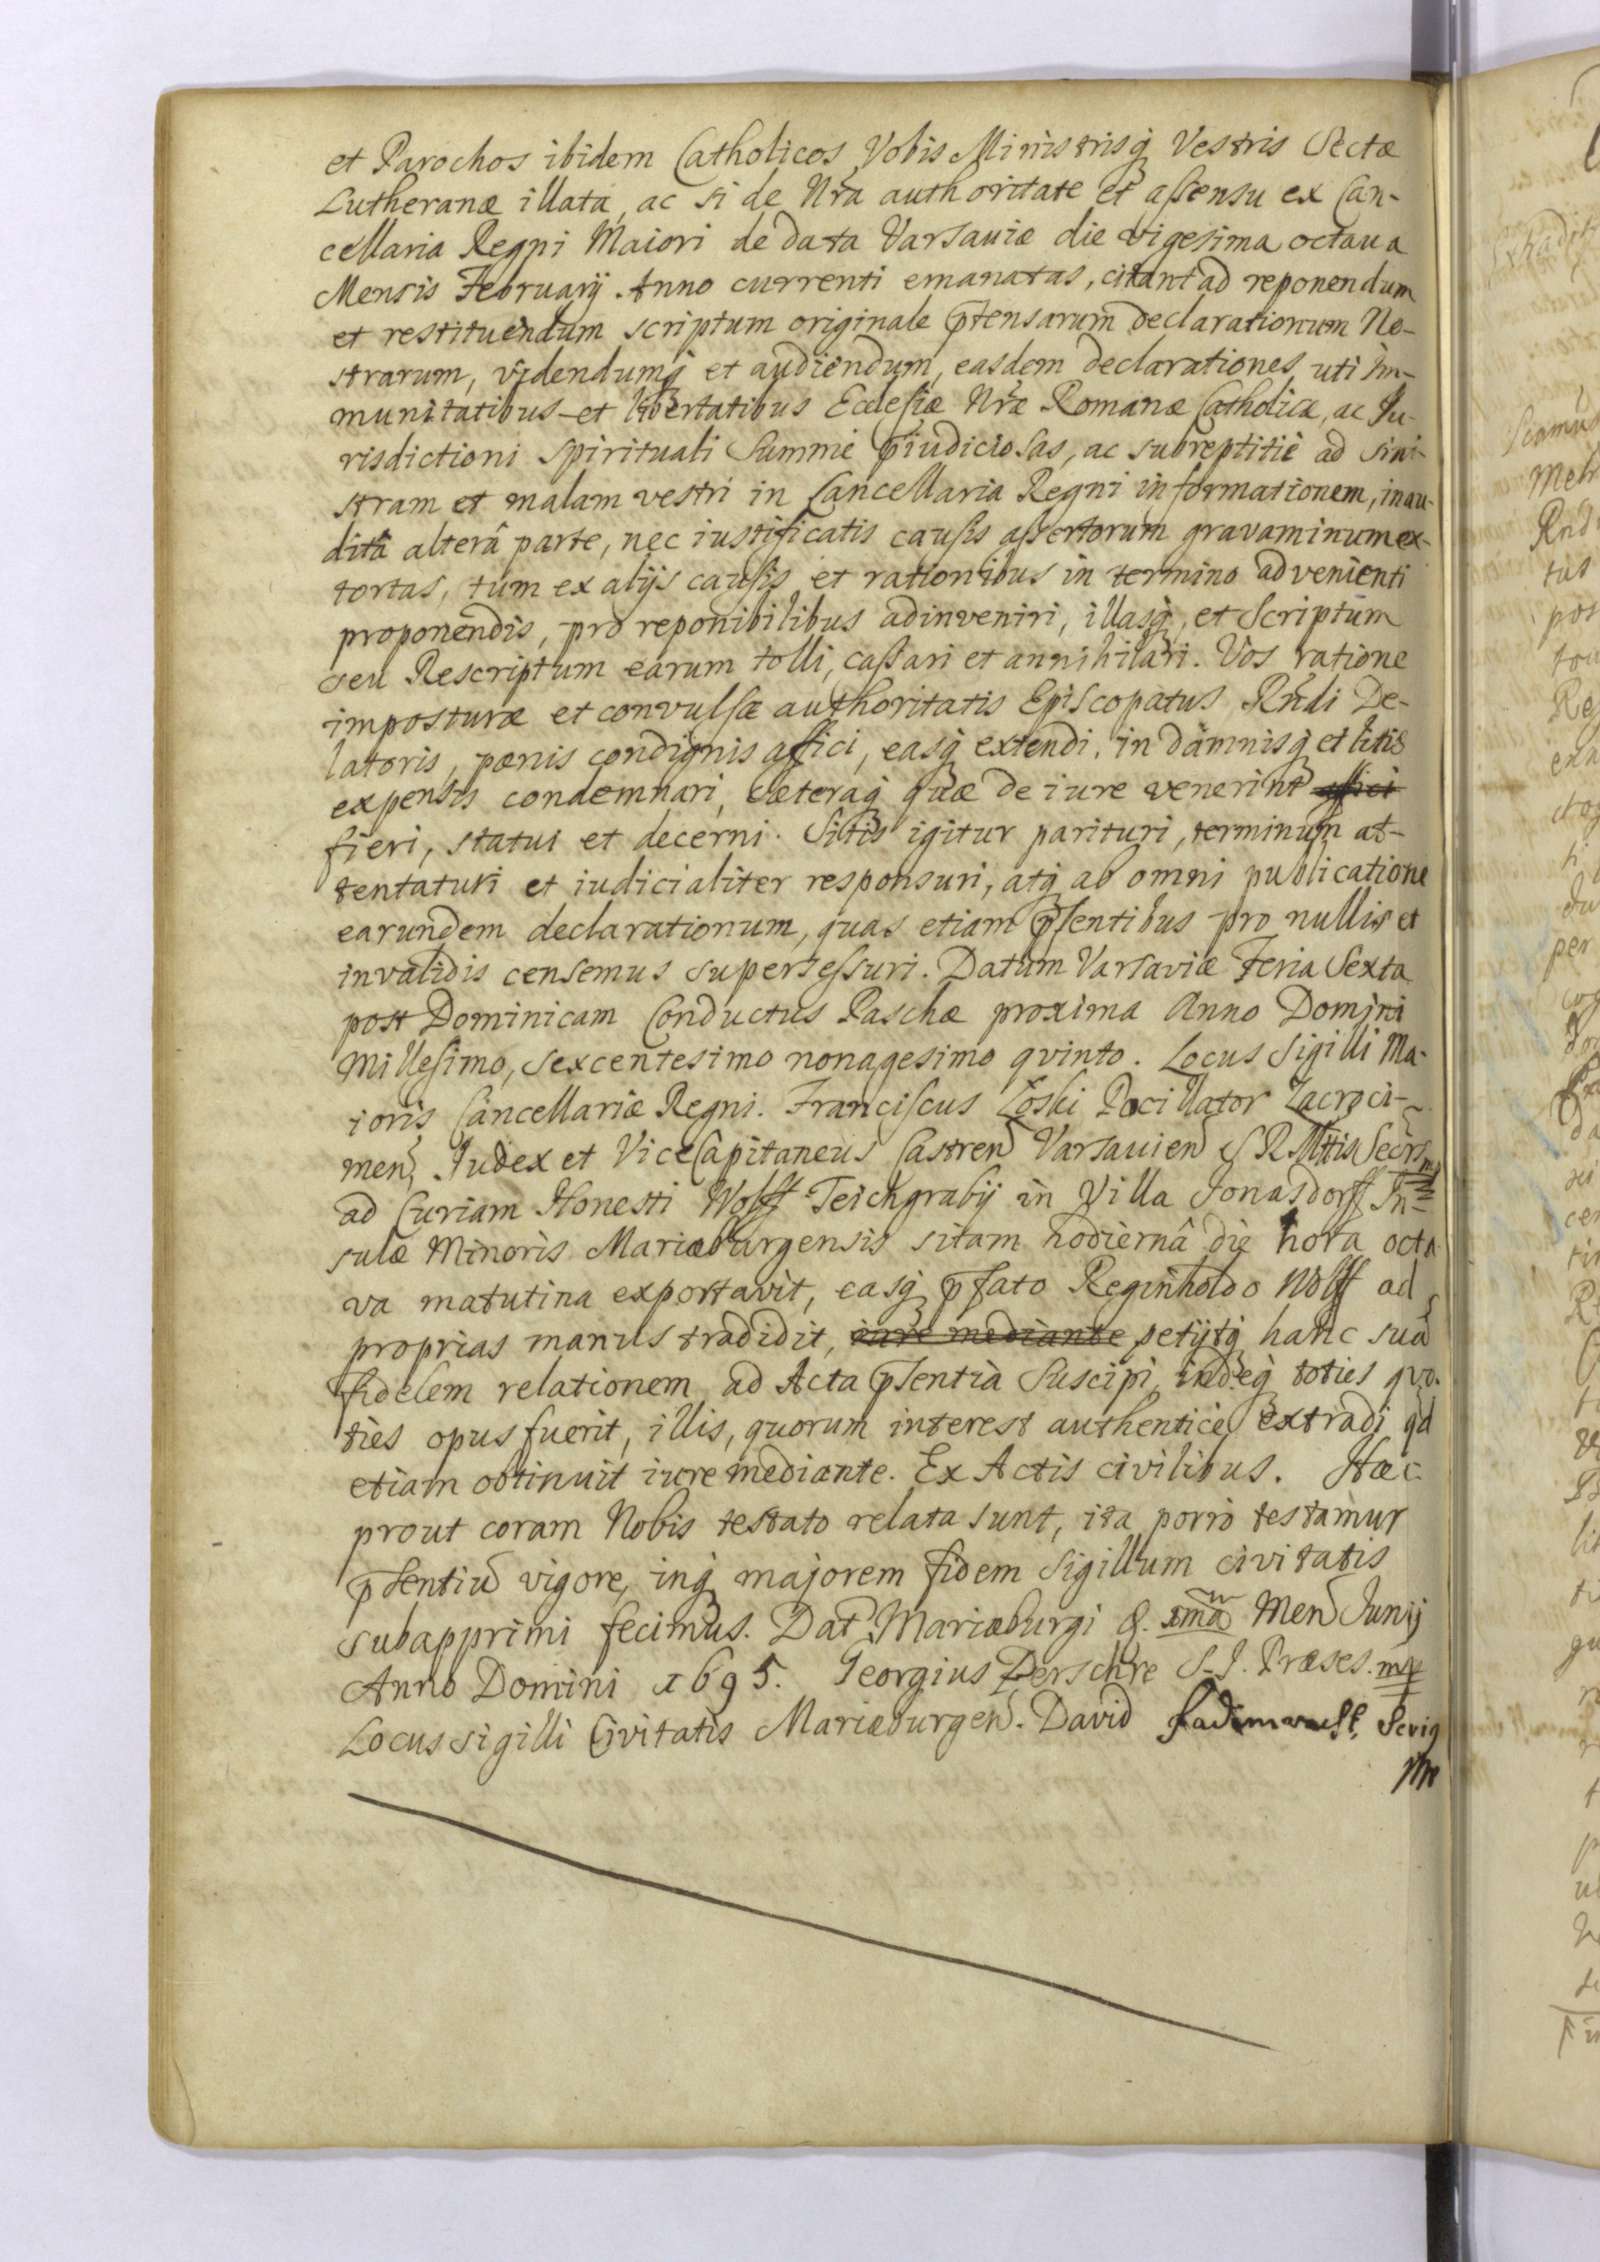 et Parochos ibidem Catholicos, Vobis Ministrisq́ Vestris Sectæ
Lutheranæ illata, ac si de Nr̃a authoritate et assensu ex Can-
cellaria Regni Maiori de data Varsaviæ die vigesima octaua
Mensis February Anno currenti emanatas, citant ad reponendum
et restituendum scriptum originale p̃tensarum declarationum No-
strarum, videndumq́ et audiendum, easdem declarationes, uti im-
munitatibus et libertatibus Ecclesiæ Nr̃æ Romanæ Catholicæ, ac Ju-
risdictioni Spirituali Summè p̃iudiciosas, ac subreptitiè ad sini-
stram et malam vestri in Cancellaria Regni informationem, inau-
ditâ alterâ parte, nec iustificatis causis assertorum gravaminum ex-
tortas, tum ex alijs causis et rationibus in termino advenienti
proponendis, pro reponibilibus adinveniri, illasq́, et Scriptum
seu Rescriptum earum tolli, cassari et annihilari. Vos ratione
imposturæ et convulsæ authoritatis Episcopatus Rñdi De-
latoris, pœnis condignis affici, easq́ extendi, in damnisq́ et litis
expensis condemnari, cæteraq́ quæ de iure venerint affici
fieri, statui et decerni. Sitis igitur parituri, terminum at-
tentaturi et iudicialiter responsuri, atq́ ab omni publicatione
earundem declarationum, quas etiam p̃sentibus pro nullis et
invalidis censemus supersessuri. Datum Varsaviæ Feria Sexta
post Dominicam Conductus Paschæ proxima Anno Domini
Millesimo, sexcentesimo nonagesimo qvinto. Locus Sigilli Ma-
ioris Cancellariæ Regni. Franciscus Łoski Pocillator Zacroci-
men, Judex et ViceCapitaneus Castren Varsauien S R Mttis Secr̃s mp
ad Curiam Honesti Wolff Teichgrabij in Villa Jonasdorff In-
sulæ Minoris Mariæburgensis sitam hodiernâ die hora octa
va matutina exportavit, easq́ p̃fato Reginholdo Wolff ad
proprias manus tradidit, iure mediante petijtq́ hanc suã
fidelem relationem ad Acta p̃sentia Suscipi, indeq́ toties qvo-
ties opus fuerit, illis, quorum interest authenticè extradi qd
etiam obtinuit iure mediante. Ex Actis civilibus. Hæc
prout coram Nobis testato relata sunt, ita porrò testamur
p̃sentiũ vigore, inq́ majorem fidem Sigillum civitatis
subapprimi fecimus. Dat Mariæburgi 8. Men Junij
Anno Domini 1695. Georgius Perschke S. J. Præses. mp
Locus sigilli Civitatis Mariæburgeñ. David